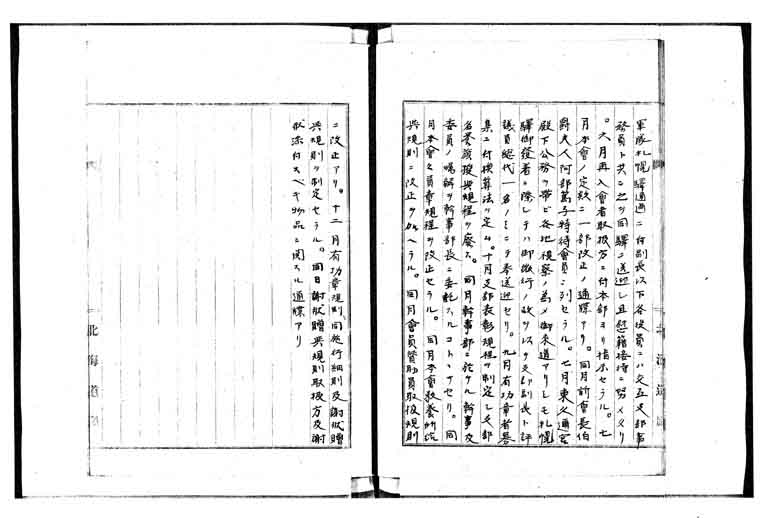 軍隊札幌驛通過ニ付副長以下各役員ニハ交互支部事
務員ト共ニ之ヲ同驛ニ送迎シ且慰藉接待ニ努メタリ
。六月再入會者取扱方ニ付本部ヨリ指示セラル。七
月本會ノ定款ニ一部改正ノ通牒アリ。同月前會長伯
爵夫人阿部篤子特待會員ニ列セラル。七月東久邇宮
殿下公務ヲ帶ビ各地視察ノ爲メ御来道アリシモ札幌
驛御發着ニ際シテハ御微行ノ故ヲ以テ支部副長ト評
議員總代一名ノミニテ奉送迎セリ。九月有功章者募
集ニ付換算法ヲ定ム。十月支部表彰規程ヲ制定シ支部
名譽諡授與規程ヲ廢ス。同月幹事部ニ於ケル幹事及
委員ノ囑解ヲ幹事部長ニ委託スルコトヽナセリ。同
月本會々員章規程ヲ改正セラル。同月本會救養施療
與規則ニ改正ヲ加ヘラル。同月會員賛助員取扱規則
ニ改正アリ。十二月有功章規則同施行細則及謝狀贈
與規則ヲ制定セラル。同日謝狀贈與規則取扱方及謝
狀添付スベキ物品ニ関スル通牒アリ
北海道
北海道